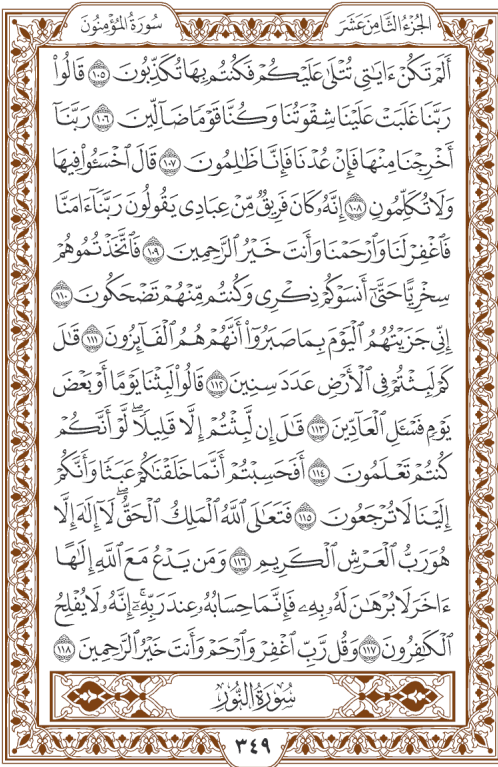 الجزء الثامن عشر
سورة المؤمنون
أَلَمْ تَكُنْ ءَايَٰتِى تُتْلَىٰ عَلَيْكُمْ فَكُنتُم بِهَا تُكَذِّبُونَ ۝١٠٥ قَالُوا۟
رَبَّنَا غَلَبَتْ عَلَيْنَا شِقْوَتُنَا وَكُنَّا قَوْمًا ضَآلِّينَ ۝١٠٦ رَبَّنَآ
أَخْرِجْنَا مِنْهَا فَإِنْ عُدْنَا فَإِنَّا ظَٰلِمُونَ ۝١٠٧ قَالَ ٱخْسَـُٔوا۟ فِيهَا
وَلَا تُكَلِّمُونِ ۝١٠٨ إِنَّهُۥ كَانَ فَرِيقٌ مِّنْ عِبَادِى يَقُولُونَ رَبَّنَآ ءَامَنَّا
فَٱغْفِرْ لَنَا وَٱرْحَمْنَا وَأَنتَ خَيْرُ ٱلرَّٰحِمِينَ ۝١٠٩ فَٱتَّخَذْتُمُوهُمْ
سِخْرِيًّا حَتَّىٰٓ أَنسَوْكُمْ ذِكْرِى وَكُنتُم مِّنْهُمْ تَضْحَكُونَ ۝١١٠
إِنِّى جَزَيْتُهُمُ ٱلْيَوْمَ بِمَا صَبَرُوٓا۟ أَنَّهُمْ هُمُ ٱلْفَآئِزُونَ ۝١١١ قَٰلَ
كَمْ لَبِثْتُمْ فِى ٱلْأَرْضِ عَدَدَ سِنِينَ ۝١١٢ قَالُوا۟ لَبِثْنَا يَوْمًا أَوْ بَعْضَ
يَوْمٍ فَسْـَٔلِ ٱلْعَآدِّينَ ۝١١٣ قَٰلَ إِن لَّبِثْتُمْ إِلَّا قَلِيلًا ۖ لَّوْ أَنَّكُمْ
كُنتُمْ تَعْلَمُونَ ۝١١٤ أَفَحَسِبْتُمْ أَنَّمَا خَلَقْنَٰكُمْ عَبَثًا وَأَنَّكُمْ
إِلَيْنَا لَا تُرْجَعُونَ ۝١١٥ فَتَعَٰلَى ٱللَّهُ ٱلْمَلِكُ ٱلْحَقُّ ۖ لَآ إِلَٰهَ إِلَّا
هُوَ رَبُّ ٱلْعَرْشِ ٱلْكَرِيمِ ۝١١٦ وَمَن يَدْعُ مَعَ ٱللَّهِ إِلَٰهًا
ءَاخَرَ لَا بُرْهَٰنَ لَهُۥ بِهِۦ فَإِنَّمَا حِسَابُهُۥ عِندَ رَبِّهِۦٓ ۚ إِنَّهُۥ لَا يُفْلِحُ
ٱلْكَٰفِرُونَ ۝١١٧ وَقُل رَّبِّ ٱغْفِرْ وَٱرْحَمْ وَأَنتَ خَيْرُ ٱلرَّٰحِمِينَ ۝١١٨
سُورَةُ النُّورِ
٣٤٩